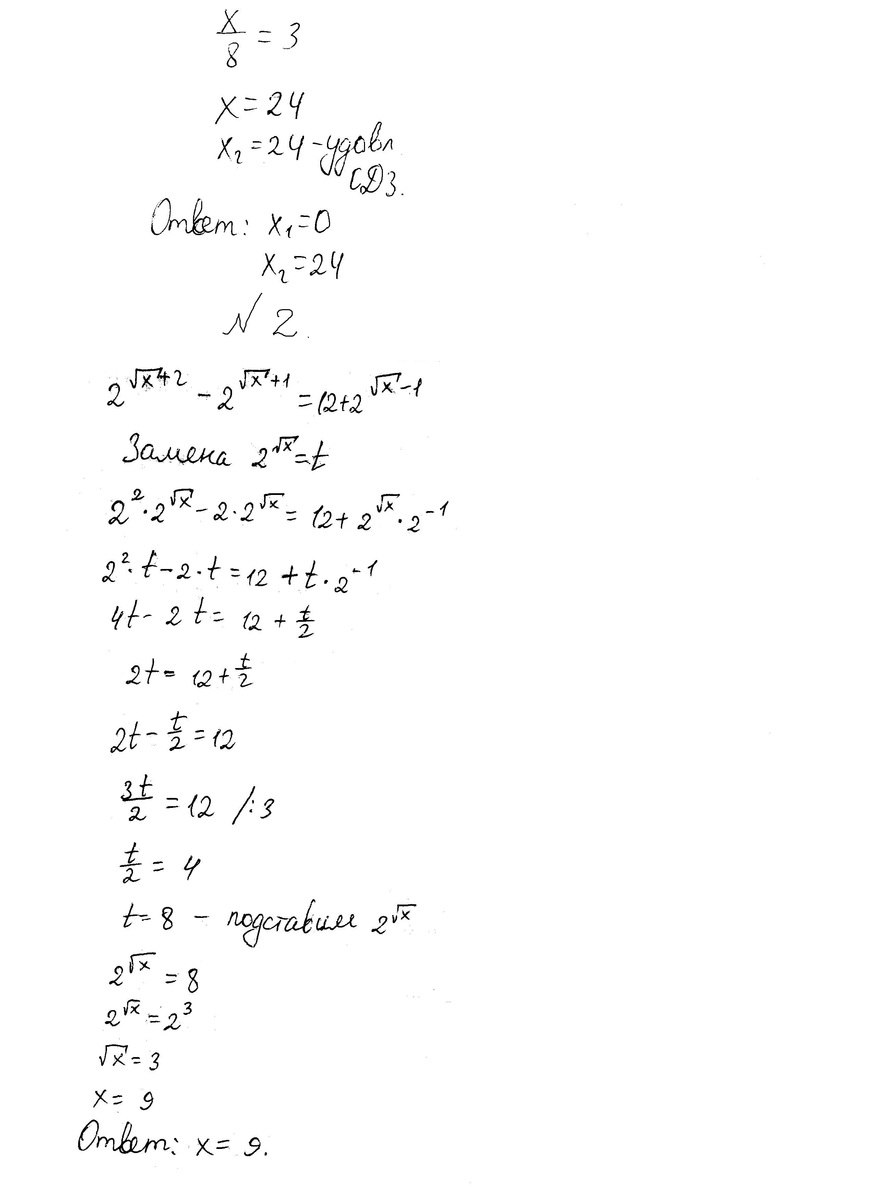 x/8 = 3
x = 24
x₂ = 24 - удовл
ОДЗ.
Ответ: x₁ = 0
x₂ = 24
№ 2.
2^(√x+2) - 2^(√x+1) = 12 + 2^(√x-1)
Замена 2^√x = t
2² · 2^√x - 2 · 2^√x = 12 + 2^√x · 2^-1
2² · t - 2 · t = 12 + t · 2^-1
4t - 2t = 12 + t/2
2t = 12 + t/2
2t - t/2 = 12
3t/2 = 12 /:3
t/2 = 4
t = 8 - подставим 2^√x
2^√x = 8
2^√x = 2³
√x = 3
x = 9
Ответ: x = 9.